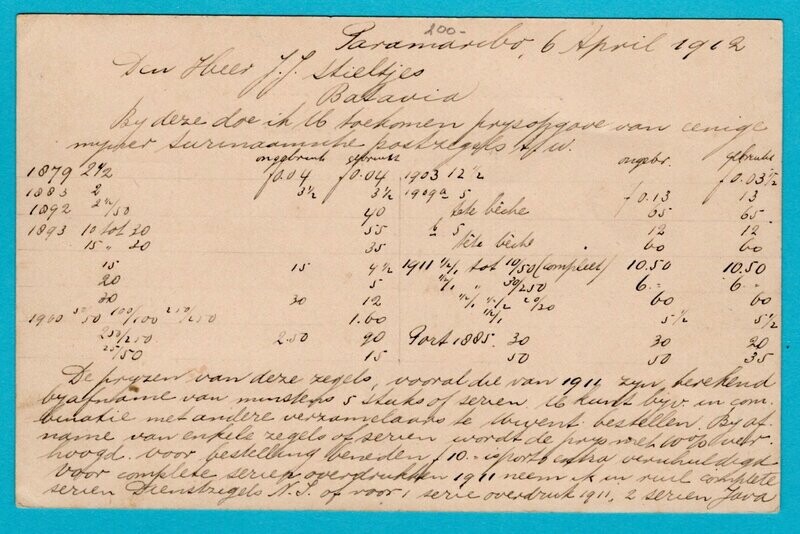 200-
Paramaribo, 6 April 1912
Den Heer J.J. Stieltjes
Batavia
By deze doe ik U toekomen prysopgave van eenige
myner Surinaamsche postzegels t/w.
ongebruikt gebruikt ongebr. gebruikt
1879 2 1/2 f 0.04 f 0.04 1903 12 1/2 f 0.03 1/2
1883 2 3 1/2 3 1/2 1909a 5 f 0.13 13
1892 2 1/2/50 40 tête bêche 65 65
1893 10 tot 20 55 b 5 12 12
15 " 20 35 tête bêche 60 60
15 15 4 1/2 1911 1/2/1 tot 10/50 (compleet) 10.50 10.50
20 5 1/2/1 " 30/250 6.- 6.-
30 30 12 1/2/1 1/2/2 20/30 60 60
1900 50/50 100/100 250/250 1.60 1/2/1 5 1/2 5 1/2
250/250 2.50 90 Port 1885. 30 30 20
25/50 15 50 50 35
De pryzen van deze zegels, vooral die van 1911 zyn berekend
by afname van minstens 5 stuks of serien. U kunt byv. in com-
binatie met andere verzamelaars te Uwent bestellen. By af-
name van enkele zegels of serien wordt de prys met 10% ver-
hoogd. Voor bestelling beneden f 10.- is porto extra verschuldigd
Voor complete serien overdrukken 1911 neem ik in ruil complete
serien Dienstzegels N.I. of voor 1 serie overdruk 1911, 2 serien Java